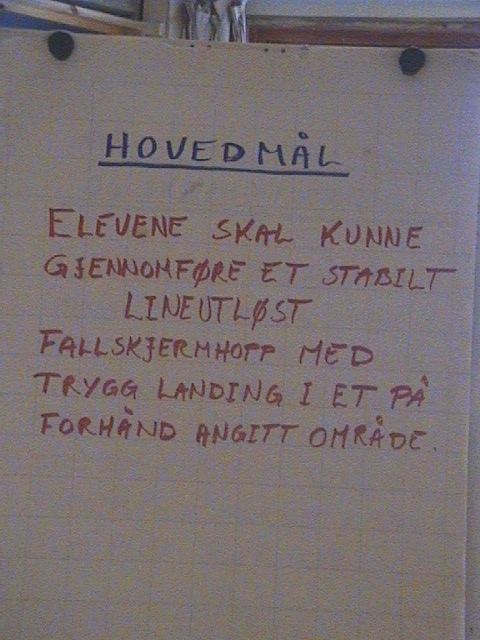 HOVEDMÅL
ELEVENE SKAL KUNNE
GJENNOMFØRE ET STABILT
LINEUTLØST
FALLSKJERMHOPP MED
TRYGG LANDING I ET PÅ
FORHÅND ANGITT OMRÅDE.